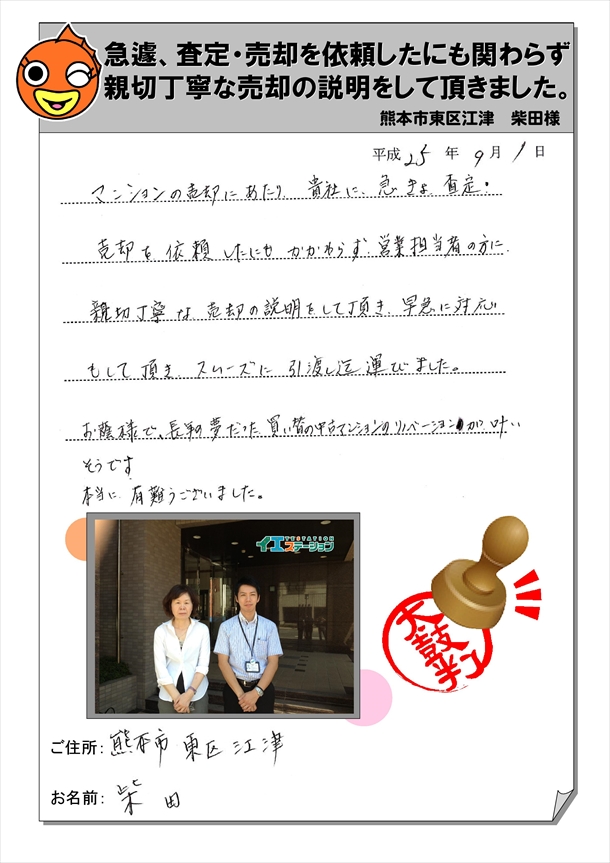 急遽、査定・売却を依頼したにも関わらず
親切丁寧な売却の説明をして頂きました。
熊本市東区江津 柴田様
平成 25 年 9 月 1 日
マンションの売却にあたり 貴社に、急きょ、査定・
売却を依頼したにもかかわらず 営業担当者の方に、
親切丁寧な売却の説明をして頂き、早急に対応
もして頂き スムーズに引渡し迄運びました。
お蔭様で、長年の夢だった買い替の中古マンションのリノベーションが叶い
そうです
本当に有難うございました。
YESTATION
イエステーション
太鼓判
ご住所：熊本市東区江津
お名前：柴田